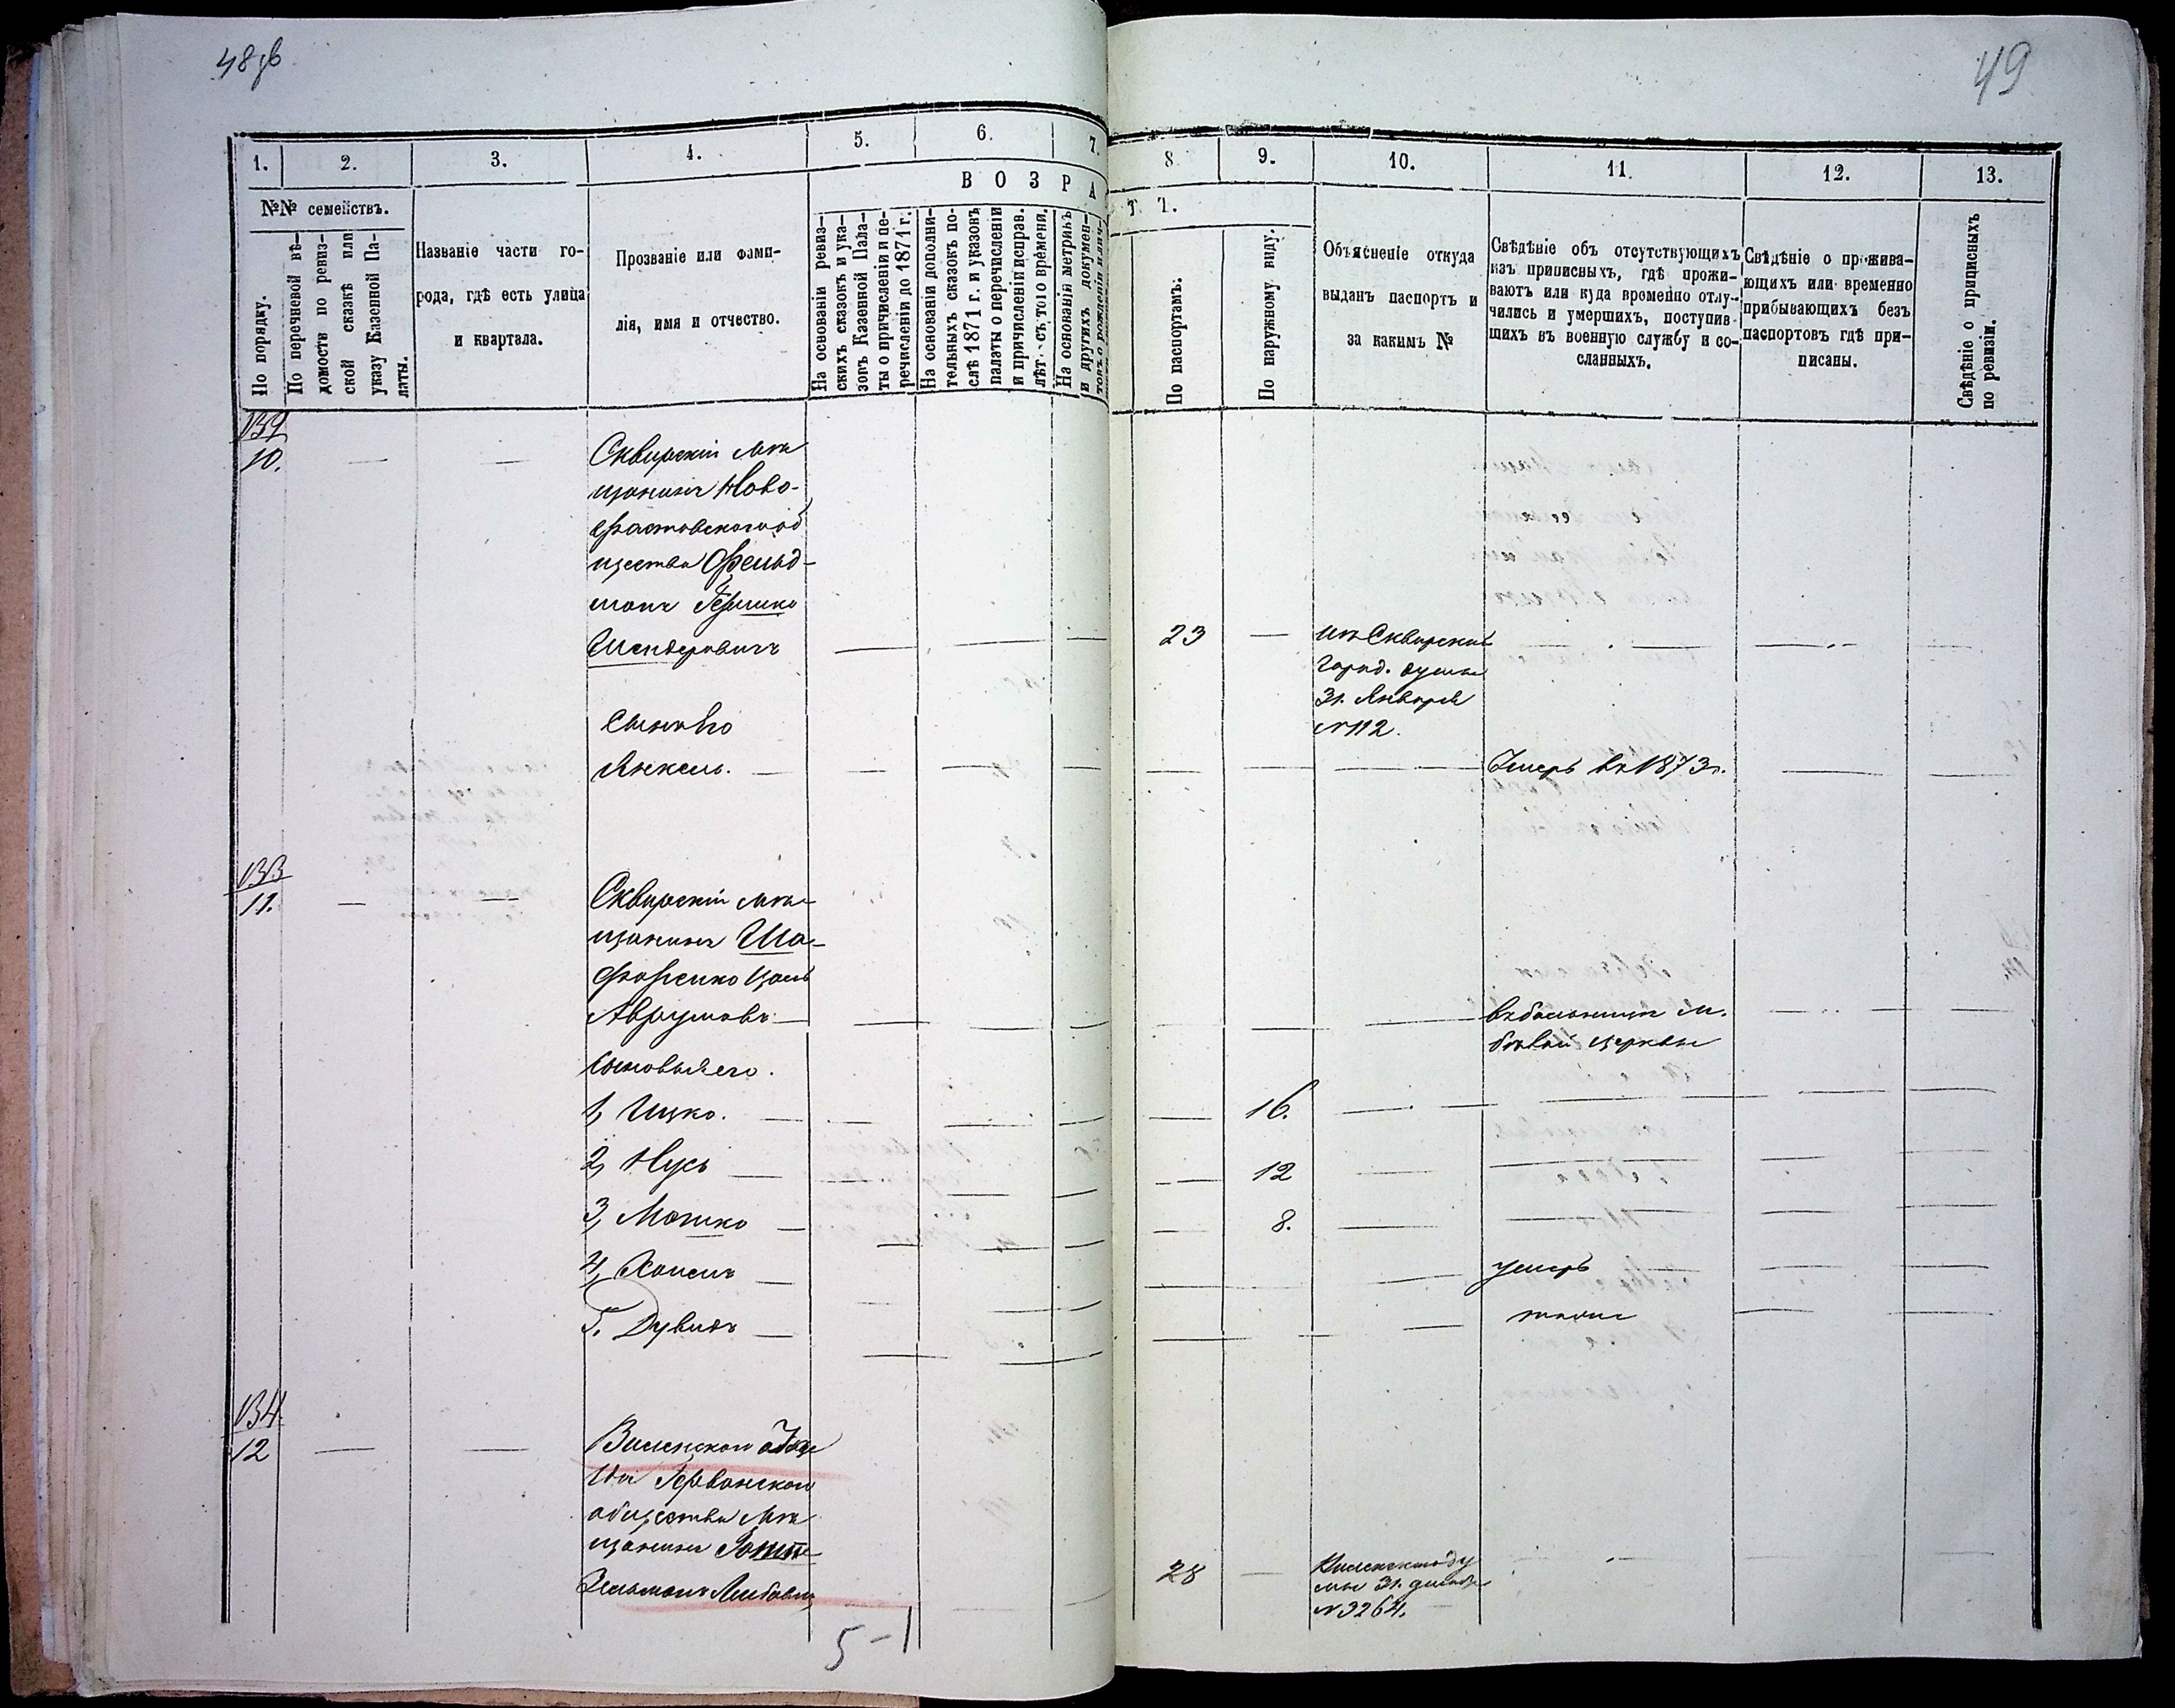 48 об
49
1.
2.
3.
4.
5.
6.
7.
8.
9.
10.
11.
12.
13.
№№ семействъ.
В О З Р А
Т Ъ.
По порядку.
По перечневой вѣ-
домости по ревиз-
ской сказкѣ или
указу Казенной Па-
латы.
Названіе части го-
рода, гдѣ есть улица
и квартала.
Прозваніе или фами-
лія, имя и отчество.
На основаніи ревиз-
скихъ сказокъ и ука-
зовъ Казенной Пала-
ты о причисленіи и пе-
речисленіи до 1871 г.
На основаніи дополни-
тельныхъ сказокъ по-
слѣ 1871 г. и указовъ
палаты о перечисленіи
и причисленіи исправ.
лѣт. съ того времени.
На основаніи метрикъ
и другихъ докумен-
товъ о рожденіи
По паспортамъ.
По наружному виду.
Объясненіе откуда
выданъ паспортъ и
за какимъ №
Свѣдѣніе объ отсутствующихъ
изъ приписныхъ, гдѣ прожи-
ваютъ или куда временно отлу-
чились и умершихъ, поступив-
шихъ въ военную службу и со-
сланныхъ.
Свѣдѣніе о прожива-
ющихъ или временно
прибывающихъ безъ
паспортовъ гдѣ при-
писаны.
Свѣдѣніе о приписныхъ
по ревизіи.
10.
Сквирскій мѣ
щанинъ Ново-
фастовскаго об
щества Фельд-
манъ Гершко
Шендеровичъ
23
изъ Сквирской
город. думы
31. Января
№112.
Сынъ Его
Янкель.
Умеръ въ 1873 г.
133
11.
Сквирскій мѣ-
щанинъ Ша-
форенко
Аврумовъ
въ больницѣ м.
бѣлой церкви
сыновья его.
1, Ицко.
16.
2, Нусь
12
3, Мошко
8.
4, Хаимъ
умеръ
5. Дувидъ
тоже
134
12
Виленской
общества мѣ
щанинъ
Зельманъ Лейбовъ
28
думы 31. декабр
№3264.
5-1